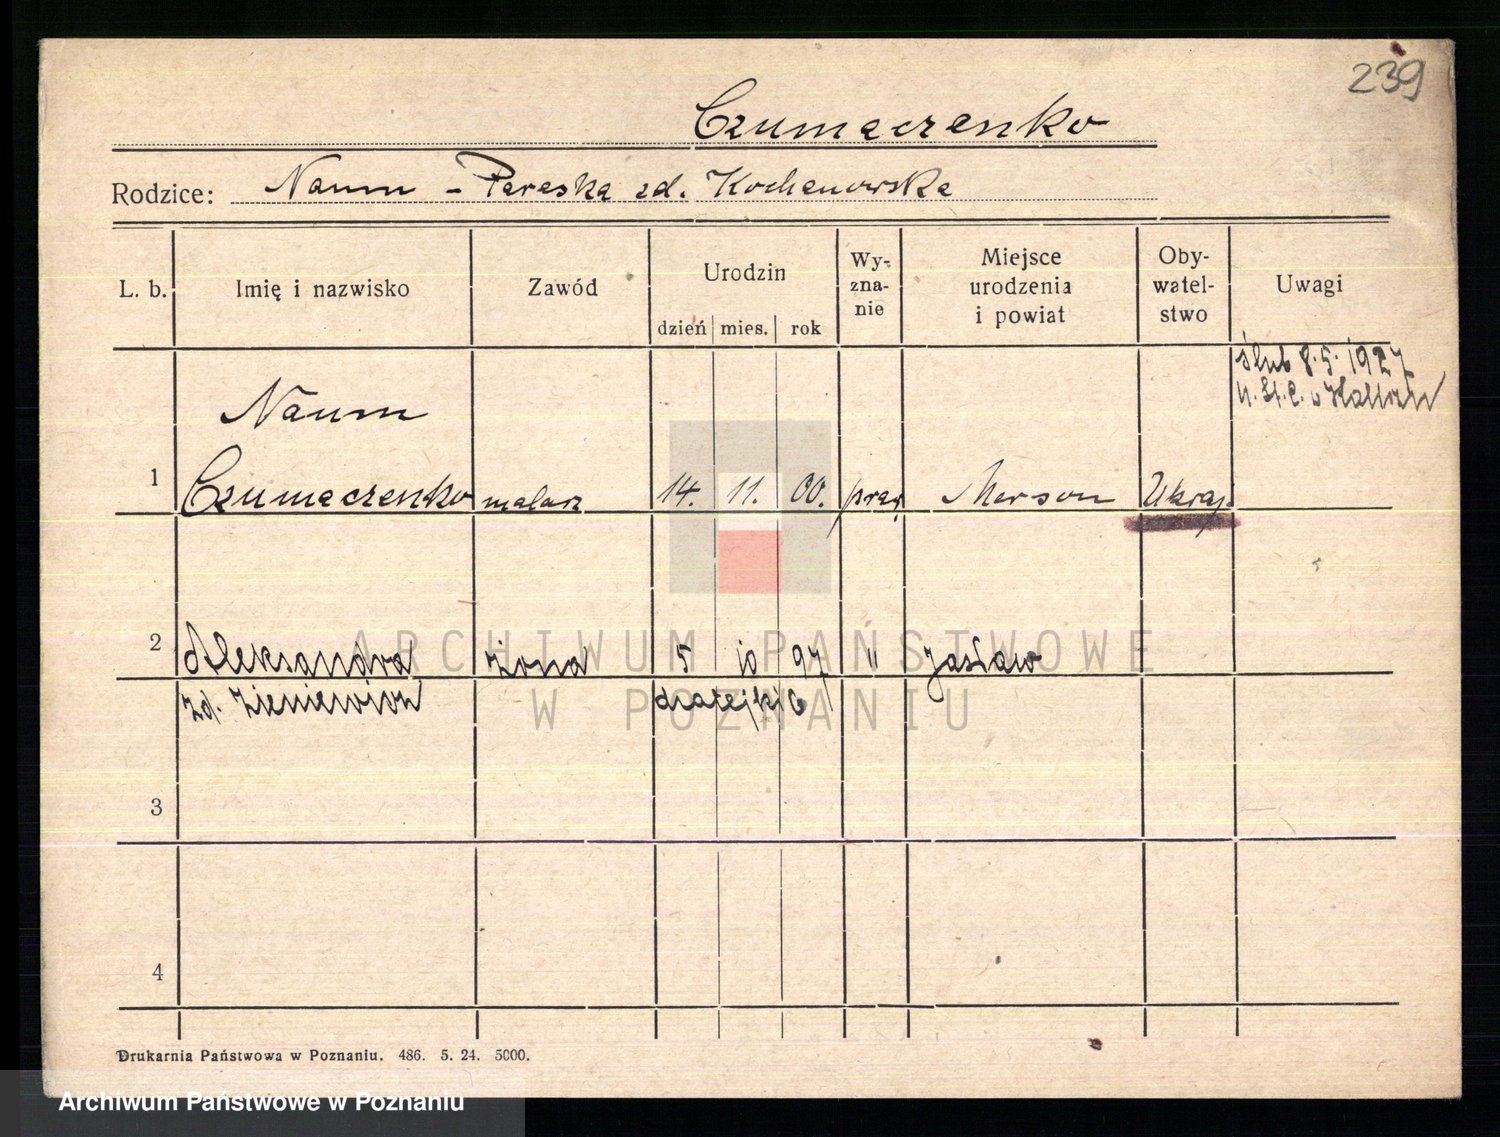 239
Czumaczenko
Rodzice: Naum - Paraska zd. Kochanowska
L. b. Imię i nazwisko Zawód Urodzin Wy-zna-nie Miejsce urodzenia i powiat Oby-watel-stwo Uwagi
dzień mies. rok
ślub 8.5.1927
Naum
1 Czumaczenko malarz 14. 11. 00. praw Merson Ukraj.
2 Aleksandra żona 5 10 97 " Jasław
zd. Zieniewicz
3
4
Drukarnia Państwowa w Poznaniu. 486. 5. 24. 5000.
ARCHIWUM PAŃSTWOWE
W POZNANIU
Archiwum Państwowe w Poznaniu